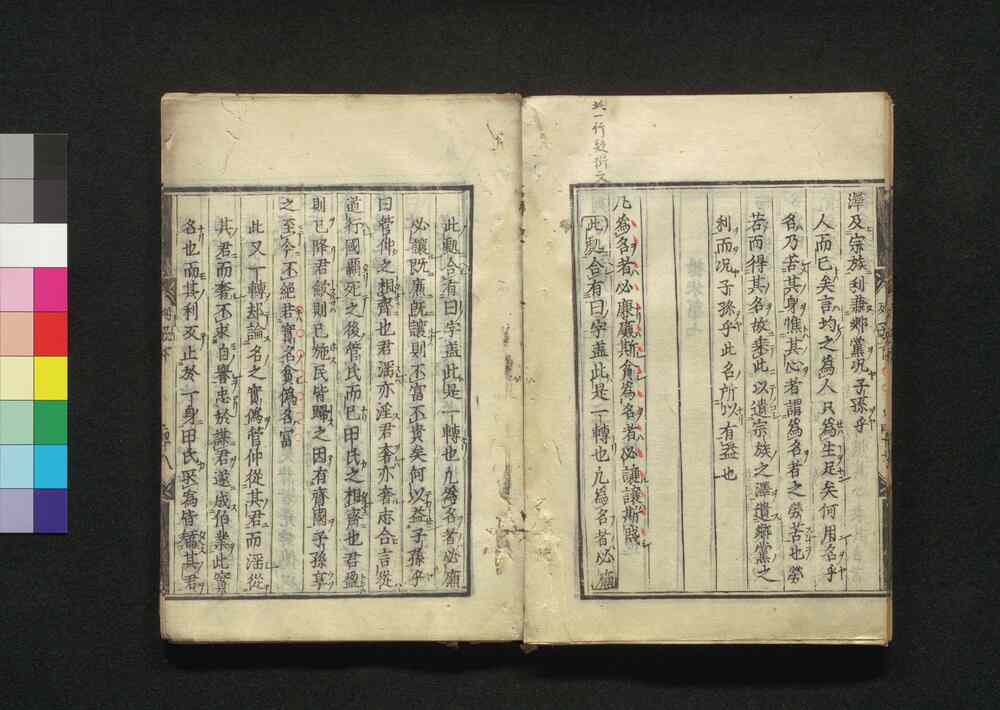 此一行疑衍文
澤及宗族利兼鄉黨况子孫乎
人而已矣言均之為人只為生足矣何用名乎
名乃苦其身憔其心者謂為名者之勞苦也勞
苦而得其名故乗此以遺宗族之澤遺鄉黨之
利而况子孫乎此名所以有益也
凡為名者必廉廉斯貧為名者必讓讓斯賤
此處合有曰字盖此是一轉也凢為名者必廉
此處合有曰字盖此是一轉也凢為名者必廉
必讓既廉既讓則不富不貴矣何以益子孫乎
曰管仲之相齊也君淫亦淫君奢亦奢志合言從
道行國霸死之後管氏而已田氏之相齊也君盈
則已降君歛則已施民皆歸之因有齊國子孫享
之至今不絕若實名貧偽名富
此又一轉却論名之實偽管仲從其君而淫從
其君而奢不求自譽忠於謀君遂成伯業此實
名也而其利又止於一身田氏所為皆矯其君